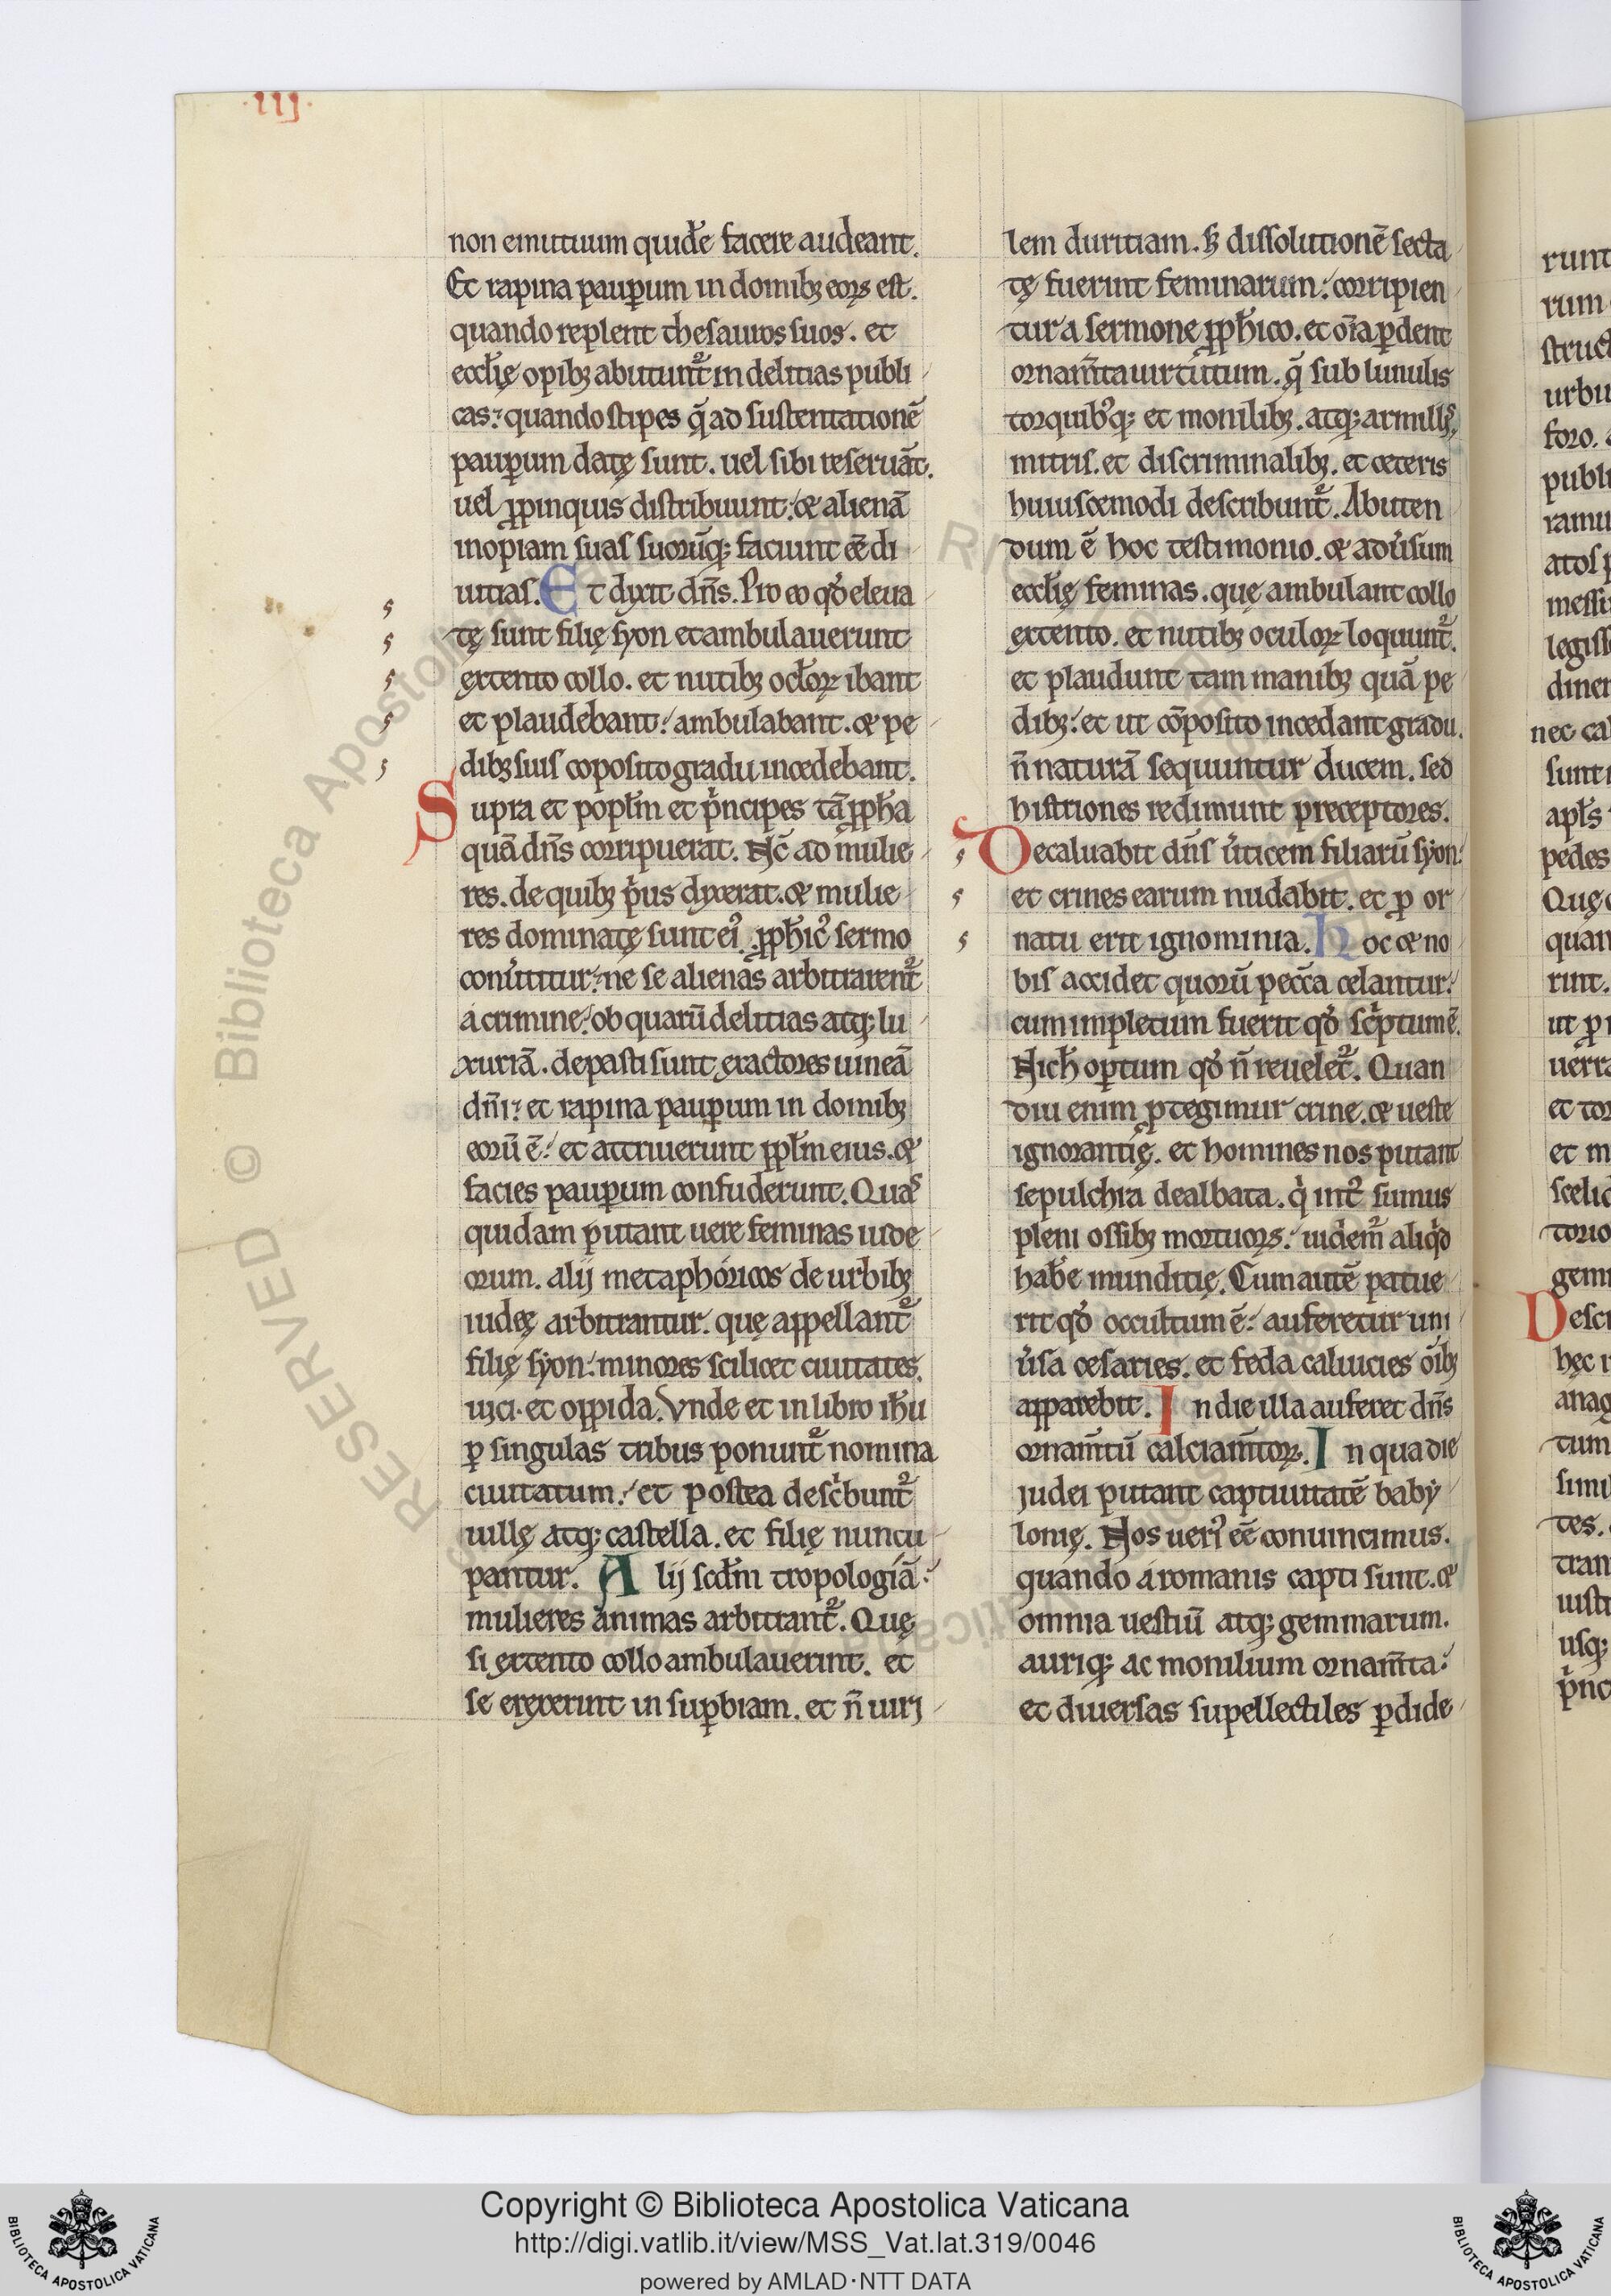 .iij.
non emutiuum quidē facere audeant.
Et rapina paup̲um in domibꝫ eoꝝ est.
quando replent thesauros suos. et
eccl̄ię opibꝫ abutunt᷑ in delitias publi
cas. quando stipes q̄ ad sustentationē
paup̲um datę sunt. uel sibi reseruāt.
uel ꝓpinquis distribuunt. & alienā
inopiam suas suorūqꝫ faciunt ēē di
uitias. Et dyxit dn̄s. Pro eo qđ eleua
tę sunt filię syon et ambulauerunt
extento collo. et nutibꝫ ocl̄oꝝ ibant
et plaudebant. ambulabant. & pe
dibꝫ suis coposito gradu incedebant.
Supra et popl̄m et pͥncipes tā ꝓph̄a
quā dn̄s corripuerat. Nc̄ ad mulie
res. de quibꝫ pͥus dyxerat. & mulie
res dominatę sunt eiꝰ. ꝓph̄icꝰ sermo
conu̓titur. ne se alienas arbitrarent᷑
a crimine. ob quarū delitias atqꝫ lu
xuriā. depasti sunt exactores uineā
dn̄i. et rapina paup̲um in domibꝫ
eorū ē. et attriuerunt ppl̄m eius. &
facies paup̲um confuderunt. Quas
quidam putant uere feminas iude
orum. alij metaphoricos de urbibꝫ
iudeę arbitrantur. quę appellant᷑
filię syon. minores scilicet ciuitates.
uici. et oppida. Vnde et in libro ih̄u
p̲ singulas tribus ponunt᷑ nomina
ciuitatum. et postea descͥbunt᷑
uillę atqꝫ castella. et filię nuncu
pantur. Alij scd̄m tropologiā.
mulieres animas arbitrant᷑. Quę
si extento collo ambulauerint. et
se erexerint in sup̲biam. et n̄ uiri
lem duritiam. sꝫ dissolutionē secta
tę fuerint feminarum. corripien
tur a sermone ꝓph̄ico. et oīa p̲dent
ornam̄ta uirtutum. q̄ sub lunulis
torquibꝰqꝫ et monilibꝫ. atqꝫ armillis.
mitris. et discriminalibꝫ. et ceteris
huiuscemodi describunt᷑. Abuten
dum ē hoc testimonio. & adu̓sum
eccl̄ię feminas. quę ambulant collo
extento. et nutibꝫ oculoꝝ loquunt᷑.
et plaudunt tam manibꝫ quā pe
dibꝫ. et ut cōposito incedant gradu.
n̄ naturā sequuntur ducem. sed
histriones redimunt preceptores.
Decaluabit dn̄s u̓ticem filiarū syon.
et crines earum nudabit. et p̲ or
natu erit ignominia. Hoc & no
bis accidet quorū pecc̄a celantur.
cum impletum fuerit qđ scͥptum ē.
Nich̄ op̲tum qđ n̄ reuelet᷑. Quan
diu enim ꝓtegimur crine. & ueste
ignorantię. et homines nos putant
sepulchra dealbata. qͥ int᷑ sumus
pleni ossibꝫ mortuoꝝ. uidem᷑ aliqͥd
hab̄e munditię. Cum autē patue
rit qđ occultum ē. auferetur uni
u̓sa cesaries. et feda caluicies oīb;
apparebit. In die illa auferet dn̄s
ornam̄tū calciam̄toꝝ. In qua die
iudei putant captiuitatē baby
lonię. Nos ueriꝰ ēē conuincimus.
quando a romanis capti sunt. &
omnia uestiū atqꝫ gemmarum.
auriqꝫ ac monilium ornam̄ta.
et diuersas supellectiles p̲dide
runt
rum
struct
urbu
foro.
publi
ramu
atos
messi
legiss
diner
nec cal
sunt
apl̄s
pedes
Que
quan
rint.
ut
uerra
et tor
et m
scelic
torio
gem
Desc
hęc
anag
tum
simi
tes.
tran
iusti
usqꝫ
pͥnc
Copyright © Biblioteca Apostolica Vaticana
http://digi.vatlib.it/view/MSS_Vat.lat.319/0046
powered by AMLAD·NTT DATA
BIBLIOTECA APOSTOLICA VATICANA
BIBLIOTECA APOSTOLICA VATICANA